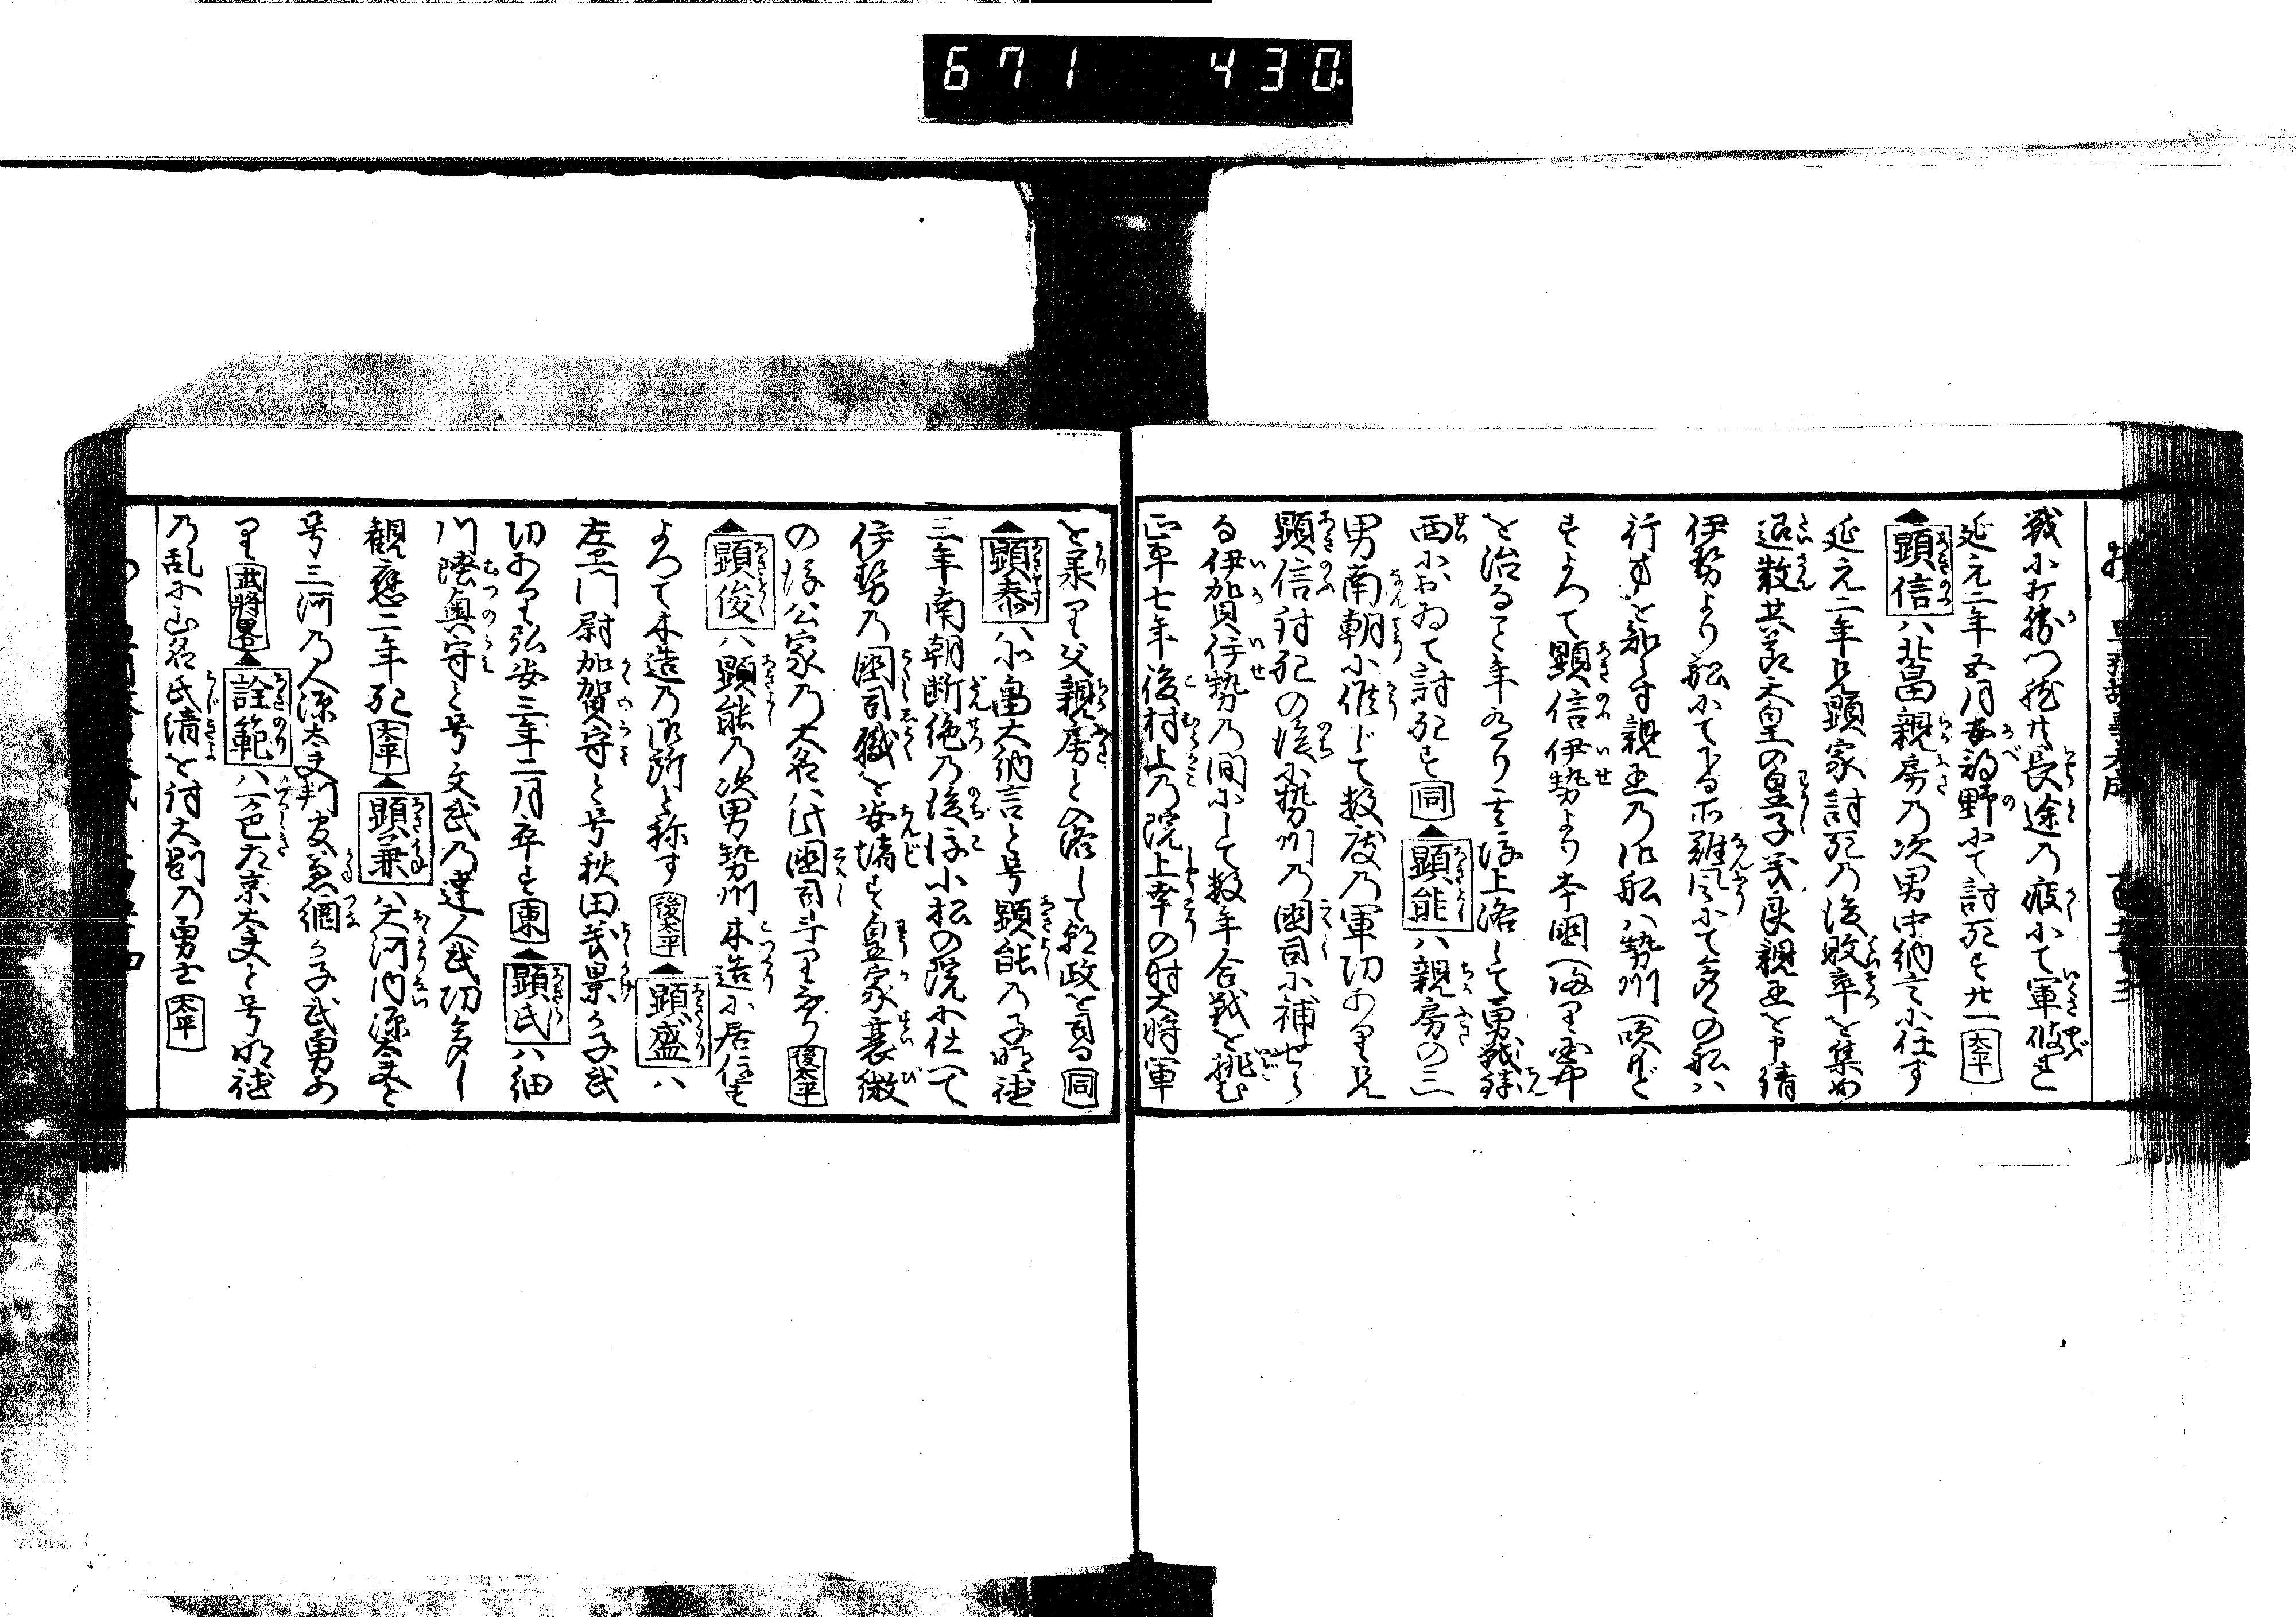 671 430
戦に打勝つ然共長途の疲にて軍破れ
延元二年五月安部野にて討死す廿一 太平
▲顕信ハ北畠親房の次男中納言に任す
延元二年兄顕家討死の後敗卒を集め
退散其後天皇の皇子義良親王を申請
伊勢より船にて下る所難風にて多くの船ハ
行方を知らす親王の御船ハ勢州へ吹もど
すよつて顕信伊勢より本国へ帰り
を治ること年あり 上洛して勇戦
西において討死す 同 ▲顕能ハ親房の三
男南朝に候じて数度の軍功あり兄
顕信討死の後勢州の国司に補せら
る伊賀伊勢の間にて数年合戦を挑む
正平七年後村上の院上幸の時大将軍
を承り父親房と入洛して朝政を司る 同
▲顕泰ハ小畠大納言と号顕能の子明徳
三年南朝断絶の後後小松の院に仕へて
伊勢の国司職を安堵す皇家衰微
の後公家の大名ハ此国司斗りなり 後太平
▲顕俊ハ顕能の次男勢州木造に居住す
よつて木造の御所と称す 後太平 ▲顕盛ハ
左衛門尉加賀守と号秋田義景か子武
功あり弘安三年二月卒す 東 ▲顕氏ハ細
川陸奥守と号文武の達人武功多し
観応二年死 太平 ▲顕兼ハ大河内源太夫と
号三河の人源太夫判官 綱か子武勇あ
り 武将畧 ▲詮範ハ一色左京大夫と号明徳
の乱に山名氏清を討大剛の勇士 太平